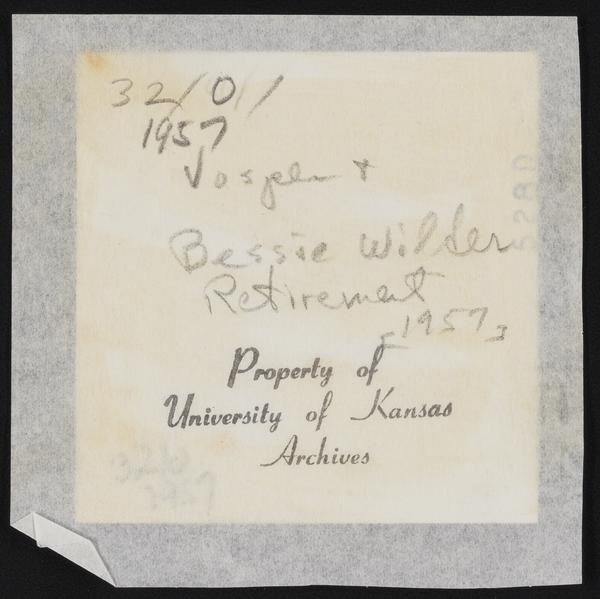 32/0/
1957
Vosper +
Bessie Wilder
Retirement
[1957]
Property of
University of Kansas
Archives
5280